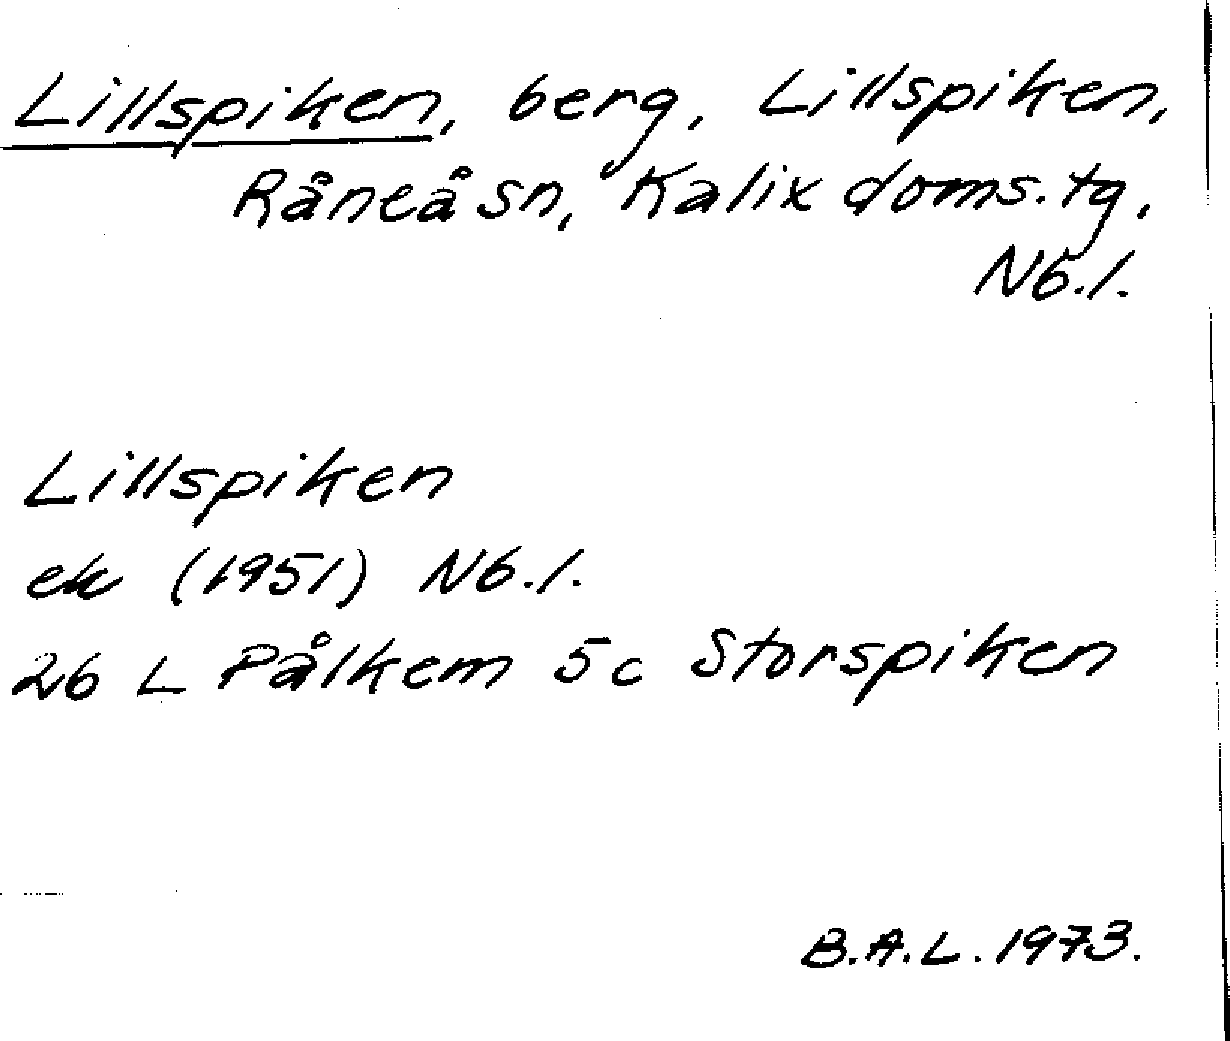 Lillspiken, berg, Lillspiken,
Råneå sn, Kalix doms.tg,
Nb.l.
Lillspiken
ek (1951) Nb.l.
26 L Pålkem 5c Storspiken
B.A.L. 1973.